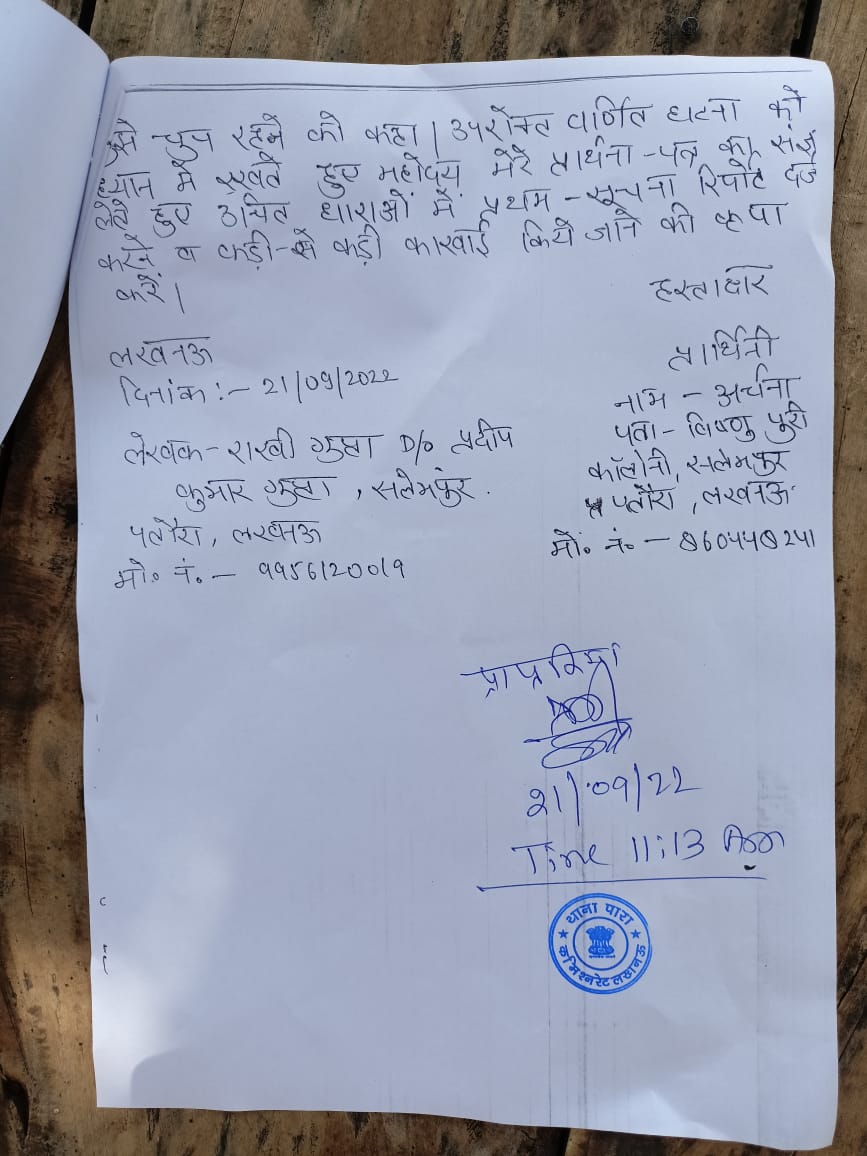 से चुप रहने को कहा। उपरोक्त वर्णित घटना को
ध्यान में रखते हुए महोदय मेरे प्रार्थना-पत्र का
लेते हुए उचित धाराओं में प्रथम-सूचना रिपोर्ट दर्ज
करने व कड़ी-से कड़ी कारवाई किये जाने की कृपा
करें।
हस्ताक्षर
लखनऊ
दिनांक :- 21/09/2022
लेखक - राखी गुप्ता D/o प्रदीप
कुमार गुप्ता, सलेमपुर.
पतौरा, लखनऊ
मो० नं. - 9956120019
प्रार्थिनी
नाम - अर्चना
पता - विष्णु पुरी
कॉलोनी, सलेमपुर
पतौरा, लखनऊ
मो० नं. - 8604480241
21/09/22
Time 11:13 Am
थाना पारा
कमिश्नरेट लखनऊ